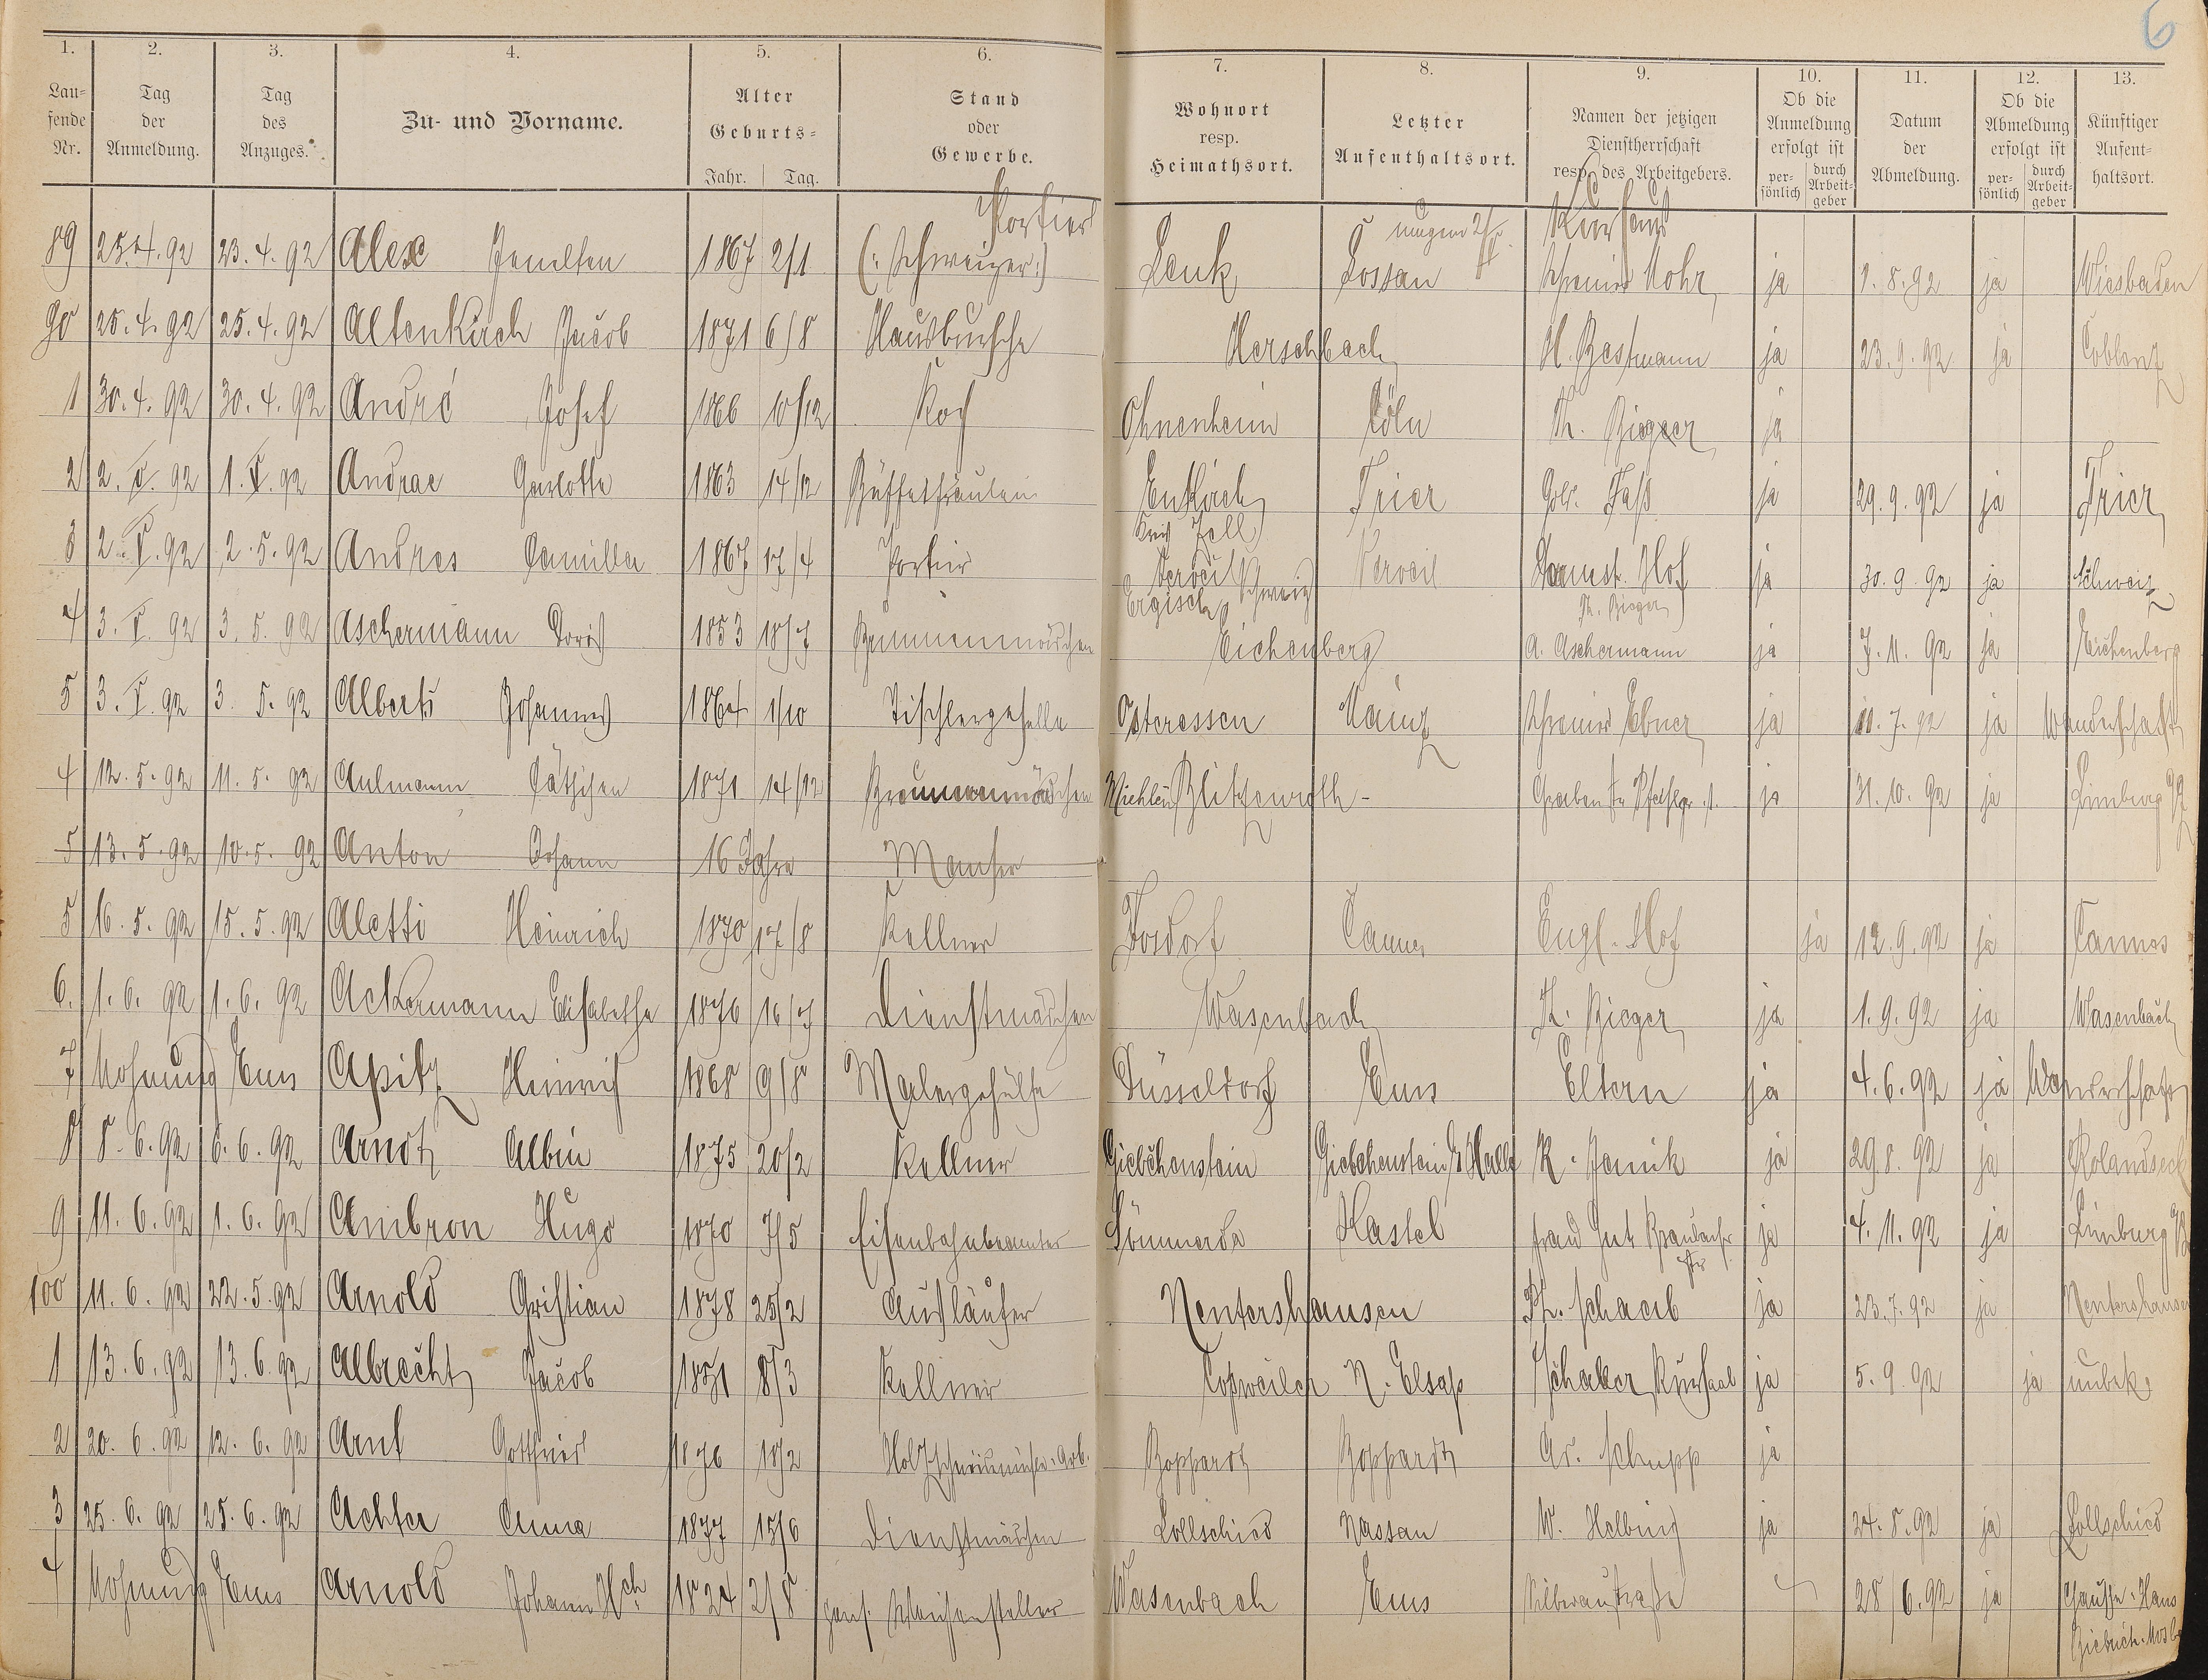 6
1. 2. 3. 4. 5. 6. 7. 8. 9. 10. 11. 12. 13.
Laufende Nr. | Tag der Anmeldung. | Tag des Anzuges. | Zu- und Vorname. | Alter Geburts- Jahr. Tag. | Stand oder Gewerbe. | Wohnort resp. Heimathsort. | Letzter Aufenthaltsort. | Namen der jetzigen Dienstherrschaft resp. des Arbeitgebers. | Ob die Anmeldung erfolgt ist persönlich durch Arbeitgeber | Datum der Abmeldung. | Ob die Abmeldung erfolgt ist persönlich durch Arbeitgeber | Künftiger Aufenthaltsort.
Portier Kurhaus
89 25.4.92 23.4.92 Alex 1867 2/1 (: Schweizer :) Lenk Lossan Mohr ja 1.8.92 ja Wiesbaden
90 25.4.92 25.4.92 Altenkirch Jacob 1871 6/8 Hausbursche Herschbach H. Bestmann ja 23.9.92 ja Coblenz
1 30.4.92 30.4.92 André Josef 1866 10/12 Koch Ohnenheim Cöln Th. Rieger ja
2 2.V.92 1.V.92 Andrae 1863 14/12 Büffetfräulein Enkirch Trier Gebr. Fass ja 29.9.92 ja Trier
Kreis Zell
3 2.V.92 2.5.92 Andres Camilla 1867 17/4 Portier Schweiz Darmst. Hof ja 30.9.92 ja Schweiz
Ergisch Th. Rieger
4 3.V.92 3.5.92 Aschermann Doris 1853 18/7 Brunnenmädchen Eichenberg A. Aschermann ja 7.11.92 ja Eichenberg
5 3.V.92 3.5.92 Alberts Johannes 1864 1/10 Tischlergeselle Osteressen Mainz Schreiner Ebner ja 11.7.92 ja Wanderschaft
4 12.5.92 11.5.92 Aulmann Käthchen 1871 14/12 Brunnenmädchen Miehlen ja 31.10.92 ja Limburg
5 13.5.92 10.5.92 Anton Johann 16 Jahre
5 16.5.92 15.5.92 Aletti Heinrich 1870 17/8 Kellner Fosdorf Cannes Engl. Hof ja 12.9.92 ja Cannes
6. 1.6.92 1.6.92 Ackermann Elisabethe 1876 16/7 Dienstmädchen Wasenbach Th. Rieger ja 1.9.92 ja Wasenbach
7 Wohnung Ems Apitz Heinrich 1868 9/8 Malergehülfe Düsseldorf Ems Eltern ja 4.6.92 ja Wanderschaft
8 8.6.92 6.6.92 Arndt Albin 1875 20/2 Kellner Giebichenstein Giebichenstein b Halle R. Janik ja 29.8.92 ja Rolandseck
9 11.6.92 1.6.92 Ambron Hugo 1870 7/5 Eisenbahnbeamter Sömmerda Kastel Frau ja 4.11.92 ja Limburg
100 11.6.92 22.5.92 Arnold Christian 1878 25/2 Ausläufer Nentershausen Ph. Schaub ja 23.7.92 ja Nentershausen
1 13.6.92 13.6.92 Albrecht Jacob 1871 8/3 Kellner Lossweiler N. Elsass Kursaal ja 5.9.92 ja unbek.
2 20.6.92 12.6.92 Arnt Gottfried 1876 18/2 Boppard Boppard Schupp ja
3 25.6.92 25.6.92 Achter Anna 1877 15/6 Dienstmädchen Lollschied Nassau W. Helbing ja 24.8.92 ja Lollschied
4 Wohnung Ems Arnold Johann Hch 1824 2/8 pens. Weichensteller Wasenbach Ems Silberaustraße 28/6.92 ja Chaussee-Haus
Biebrich-Mosb